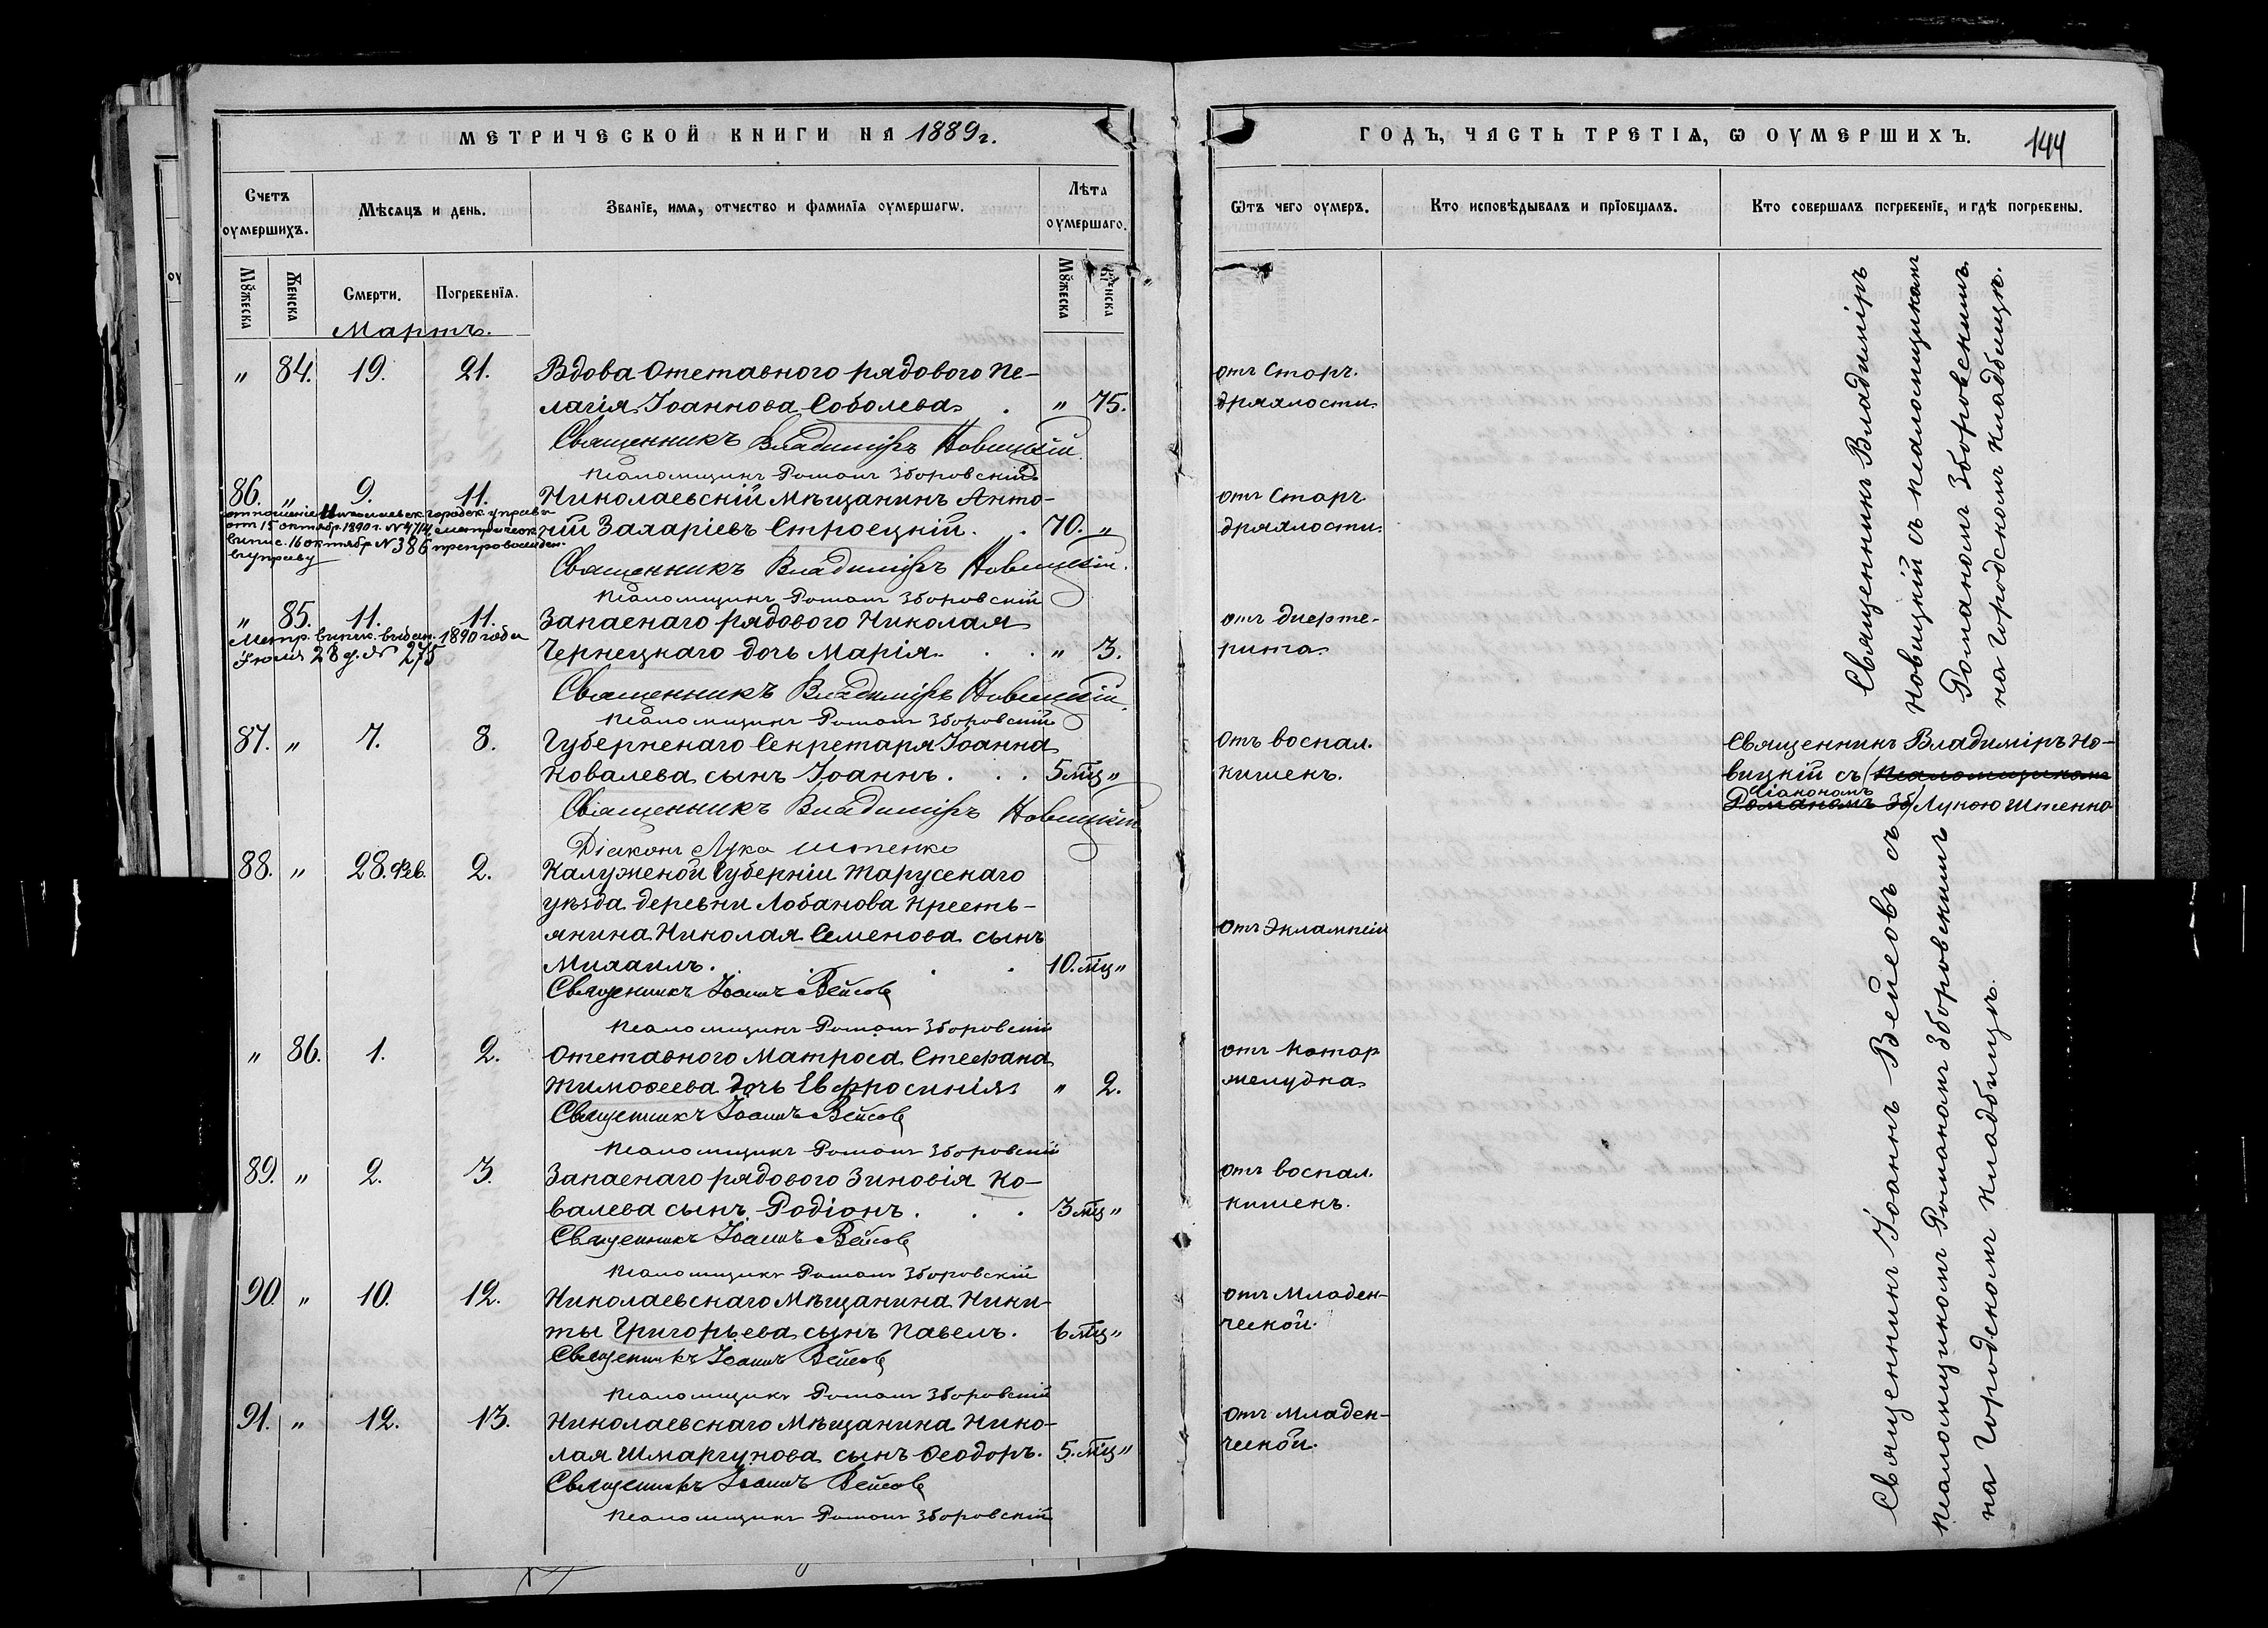 МЕТРИЧЕСКОЙ КНИГИ НА 1889 г.
Счетъ оумершихъ.
Мѣсяцъ и день.
Званїе, имя, отчество и фамилїя оумершагѡ.
Лѣта оумершаго.
Мꙋжеска
Женска
Смерти.
Погребенїя.
Мꙋжеска
Женска
Мартъ.
" 84. 19. 21. Вдова Отставного рядового Пе-
лагія Іоаннова Соболева. " 75.
Священникъ Владиміръ Новицкій.
Псаломщикъ Романъ Зборовскій
86. " 9. 11. Николаевскій Мѣщанинъ Анто-
ній Захаріевъ Строецкій. 70. "
отношеніе Николаевск. городск. управы
от 15 октябр. 1890 г. № 4714, метрическ.
выпис. 16 октябр № 386 препровожден.
в управу
Священникъ Владиміръ Новицкій.
Псаломщикъ Романъ Зборовскій
" 85. 11. 11. Запаснаго рядового Николая
Чернецкаго дочь Марія. " 3.
Метр. выпис. выдан. 1890 года
Іюля 28 д. № 275
Священникъ Владиміръ Новицкій.
Псаломщикъ Романъ Зборовскій
87. " 7. 8. Губернскаго Секретаря Іоанна
Ковалева сынъ Іоаннъ. 5 мц "
Священникъ Владиміръ Новицкій
Діаконъ Лука Штенко
88. " 28. Фев. 2. Калужской Губерніи Тарусскаго
уѣзда деревни Лобанова Кресть-
янина Николая Семенова сынъ
Михаилъ. 10. мц "
Священникъ Іоаннъ Вейсовъ
Псаломщикъ Романъ Зборовскій
" 86. 1. 2. Отставного Матроса Стефана
Тимоѳеева дочь Евфросинія " 2.
Священникъ Іоаннъ Вейсовъ
Псаломщикъ Романъ Зборовскій
89. " 2. 3. Запаснаго рядового Зиновія Ко-
валева сынъ Родіонъ. 3 мц "
Священникъ Іоаннъ Вейсовъ
Псаломщикъ Романъ Зборовскій
90. " 10. 12. Николаевскаго Мѣщанина Ники-
ты Григорьева сынъ Павелъ. 6 мц "
Священникъ Іоаннъ Вейсовъ
Псаломщикъ Романъ Зборовскій
91. " 12. 13. Николаевскаго Мѣщанина Нико-
лая Шмаргунова сынъ Ѳеодоръ. 5. мц "
Священникъ Іоаннъ Вейсовъ
Псаломщикъ Романъ Зборовскій
ГОДЪ, ЧАСТЬ ТРЕТІѦ, Ѡ ОУМЕРШИХЪ.
144
Ѿтъ чего оумеръ.
Кто исповѣдывалъ и прїобщалъ.
Кто совершалъ погребенїе, и гдѣ погребены.
отъ Старч.
дряхлости.
отъ Старч.
дряхлости.
отъ дифте-
рита.
отъ воспал.
кишекъ.
отъ Эклампсіи
отъ Катар
желудка
отъ воспал.
кишекъ.
отъ Младен-
ческой.
отъ Младен-
ческой.
Священникъ Владиміръ
Новицкій съ псаломщикомъ
Романомъ Зборовскимъ.
на городскомъ кладбищѣ.
Священникъ Владиміръ Но-
вицкій съ (псаломщикомъ
діакономъ
Романомъ Зб) Лукою Штенко
Священникъ Іоаннъ Вейсовъ съ
псаломщикомъ Романомъ Зборовскимъ
на городскомъ кладбищѣ.